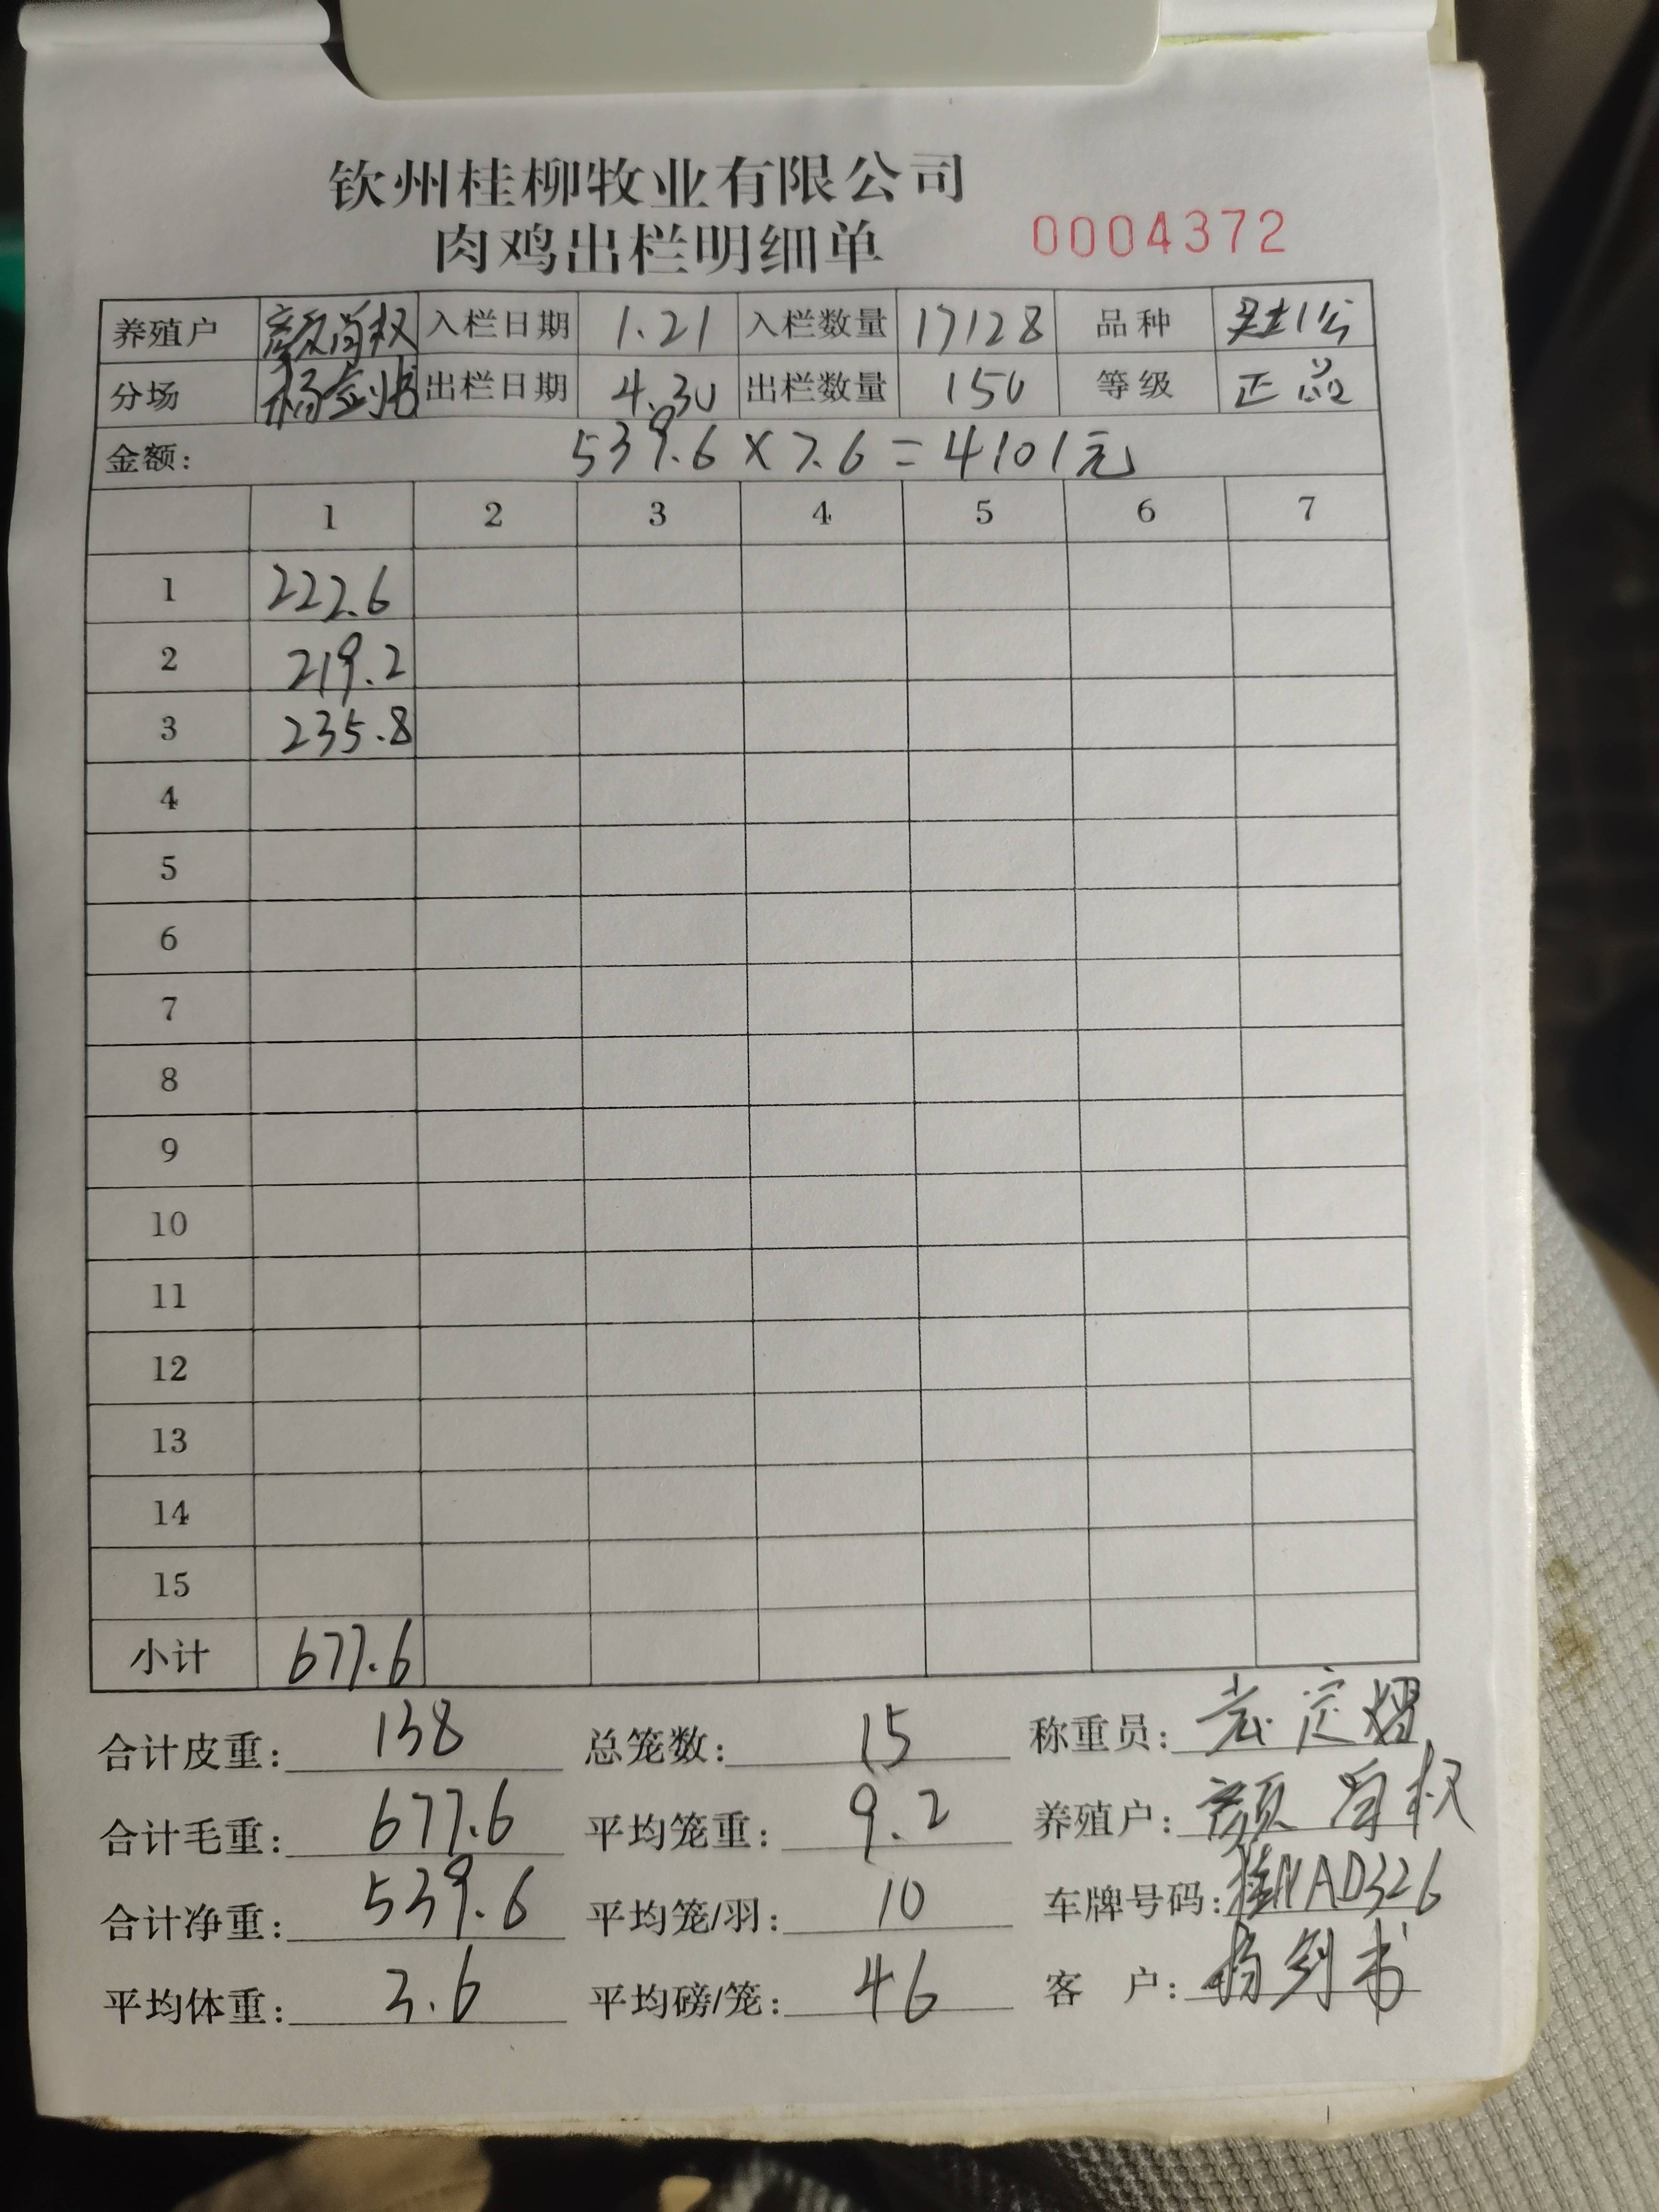 钦州桂柳牧业有限公司
肉鸡出栏明细单 0004372
养殖户 颜自权 入栏日期 1.21 入栏数量 17128 品种
分场 杨剑书 出栏日期 4.30 出栏数量 150 等级 正品
金额: 539.6 × 7.6 = 4101元
1 2 3 4 5 6 7
1 222.6
2 219.2
3 235.8
4
5
6
7
8
9
10
11
12
13
14
15
小计 677.6
合计皮重: 138 总笼数: 15 称重员:
合计毛重: 677.6 平均笼重: 9.2 养殖户: 颜自权
合计净重: 539.6 平均笼/羽: 10 车牌号码: 桂NAD326
平均体重: 3.6 平均磅/笼: 46 客 户: 杨剑书